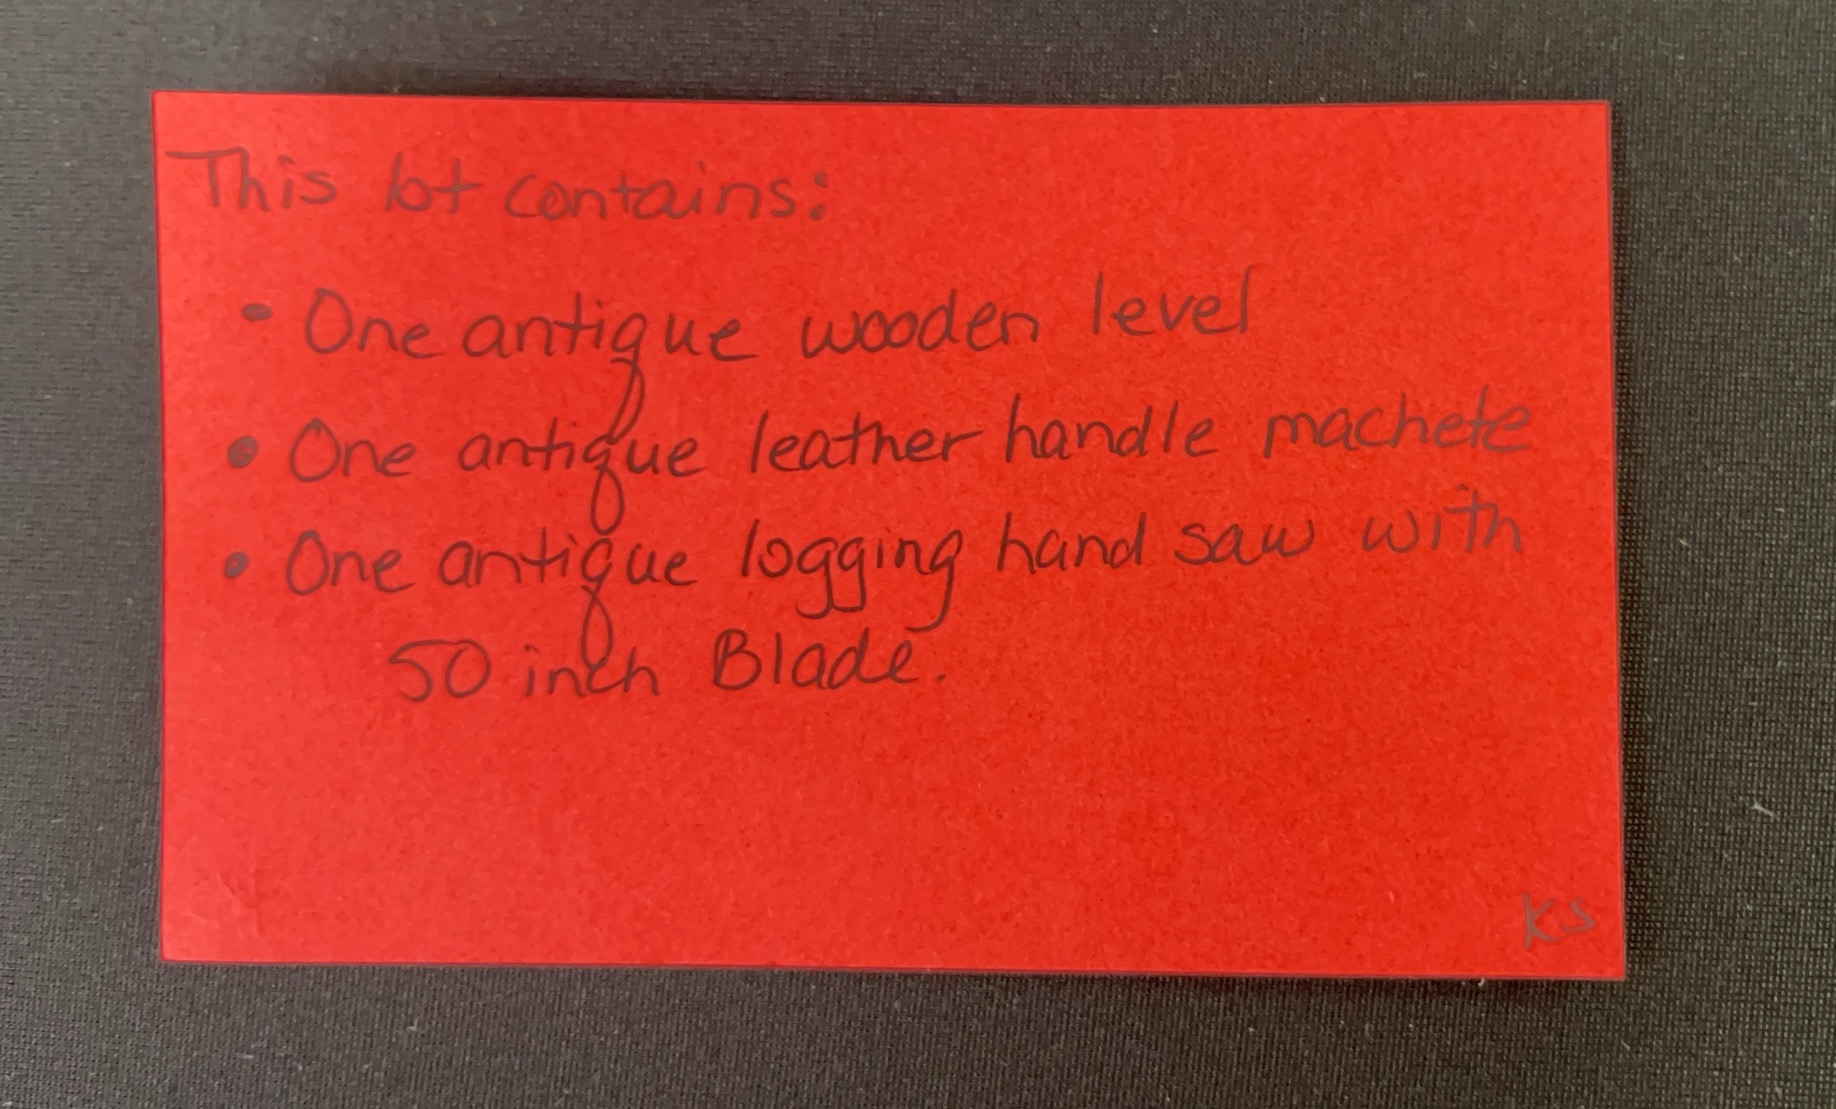 This lot contains:
• One antique wooden level
• One antique leather handle machete
• One antique logging hand saw with
50 inch Blade.
KS